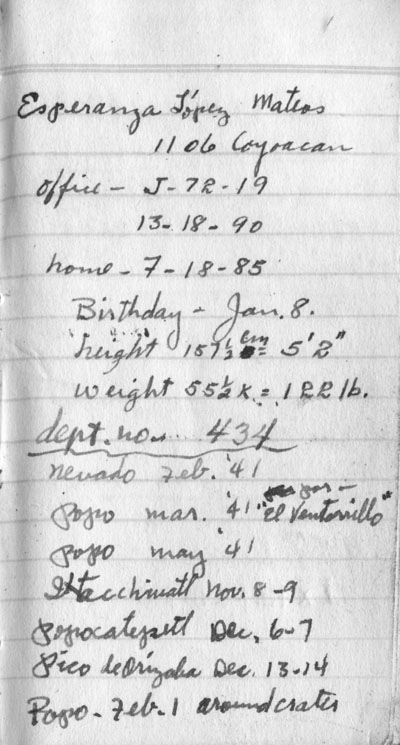 Esperanza López Mateos
1106 Coyoacan
office - J-72-19
13-18-90
home - 7-18-85
Birthday - Jan. 8.
height 157½ cm = 5'2"
weight 55½ K. = 122 lb.
dept. no. 434
Nevado Feb. '41
Popo mar. '41 por - "El Ventorrillo"
popo may '41
Iztacchiuatl Nov. 8-9
Popocatepetl Dec. 6-7
Pico de Orizaba Dec. 13-14
Popo - Feb. 1 around crater